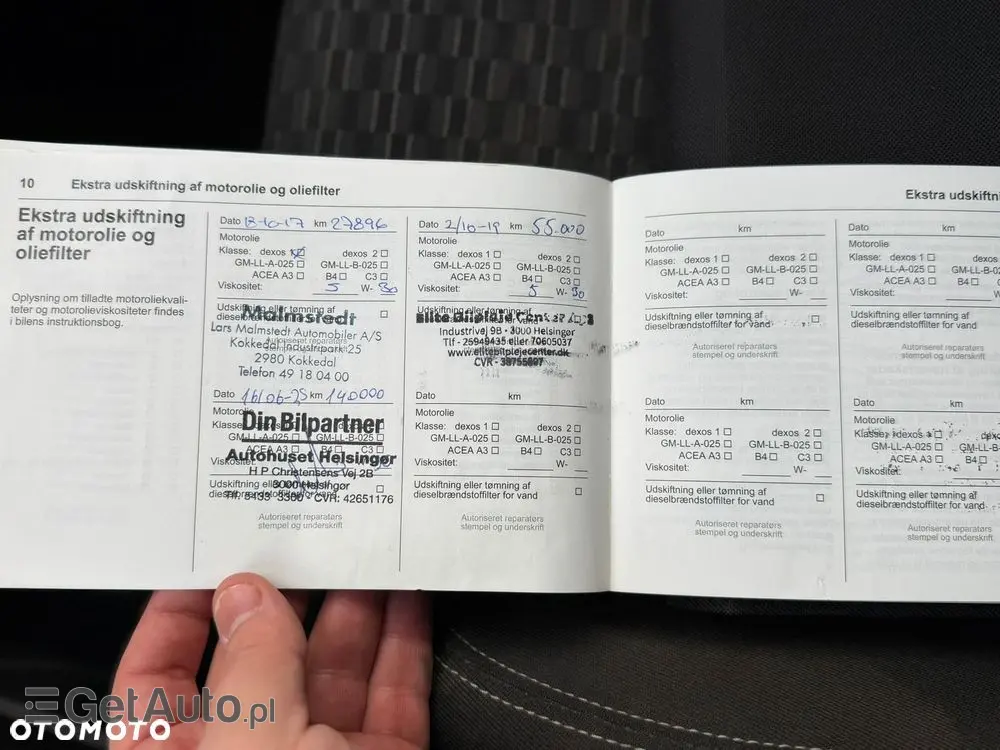 10 Ekstra udskiftning af motorolie og oliefilter
Ekstra udskiftning
af motorolie og
oliefilter
Oplysning om tilladte motoroliekvali-
teter og motorolieviskositeter findes
i bilens instruktionsbog.
Dato 13-10-17 km 27896
Motorolie
Klasse: dexos 1 ☑ dexos 2 ☐
GM-LL-A-025 ☐ GM-LL-B-025 ☐
ACEA A3 ☐ B4 ☐ C3 ☐
Viskositet: 5 W- 30
Udskiftning eller tømning af ☐
Malmstedt
Lars Malmstedt Automobiler A/S
Kokkedal Industripark 25
2980 Kokkedal
Telefon 49 18 04 00
Dato 16/06-25 km 140000
Motorolie
DinBilpartner
GM-LL-A-025 ☐ GM-LL-B-025 ☐
ACEA A3 ☐ B4 ☐ C3 ☐
Autohuset Helsingør
Viskositet:
H P Christensens Vej 2B
3000 Helsingør
CVR: 42651176
Autoriseret reparatørs
stempel og underskrift
Dato 2/10-19 km 55.000
Motorolie
Klasse: dexos 1 ☐ dexos 2 ☐
GM-LL-A-025 ☐ GM-LL-B-025 ☐
ACEA A3 ☐ B4 ☐ C3 ☐
Viskositet: 5 W- 30
Industrivej 9B - 3000 Helsingør
Tlf - 25949435 eller 70605037
www.elitebilplejecenter.dk
CVR - 38755697
Dato km
Motorolie
Klasse: dexos 1 ☐ dexos 2 ☐
GM-LL-A-025 ☐ GM-LL-B-025 ☐
ACEA A3 ☐ B4 ☐ C3 ☐
Viskositet: W-
Udskiftning eller tømning af
dieselbrændstoffilter for vand ☐
Autoriseret reparatørs
stempel og underskrift
Ekstra udskiftni
Dato km
Motorolie
Klasse: dexos 1 ☐ dexos 2 ☐
GM-LL-A-025 ☐ GM-LL-B-025 ☐
ACEA A3 ☐ B4 ☐ C3 ☐
Viskositet: W-
Udskiftning eller tømning af
dieselbrændstoffilter for vand ☐
Autoriseret reparatørs
stempel og underskrift
Dato km
Motorolie
Klasse: dexos 1 ☐ dexos 2 ☐
GM-LL-A-025 ☐ GM-LL-B-025 ☐
ACEA A3 ☐ B4 ☐ C3 ☐
Viskositet: W-
Udskiftning eller tømning af
dieselbrændstoffilter for vand ☐
Autoriseret reparatørs
stempel og underskrift
Dato km
Motorolie
Klasse: dexos 1 ☐ dexos 2
GM-LL-A-025 ☐ GM-LL-B-02
ACEA A3 ☐ B4 ☐ C3
Viskositet: W-
Udskiftning eller tømning af
dieselbrændstoffilter for vand
Autoriseret reparatørs
stempel og underskrift
Dato km
Motorolie
Klasse: dexos 1 dexos 2
GM-LL-A-025 GM-LL-B
ACEA A3 ☐ B4 ☐ C3
Viskositet: W-
Udskiftning eller tømning af
dieselbrændstoffilter for vand
Autoriseret reparatørs
stempel og underskrift
GetAuto.pl
OTOMOTO